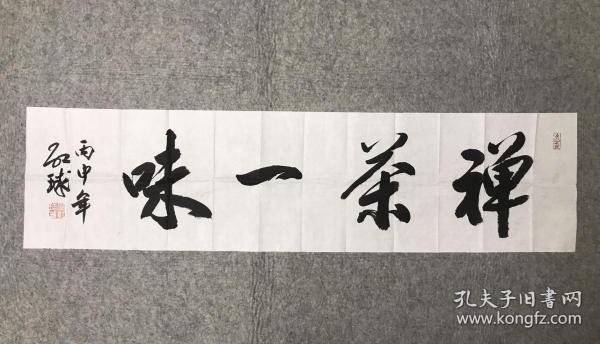 禅茶一味
丙申年
孔夫子旧書网
www.kongfz.com